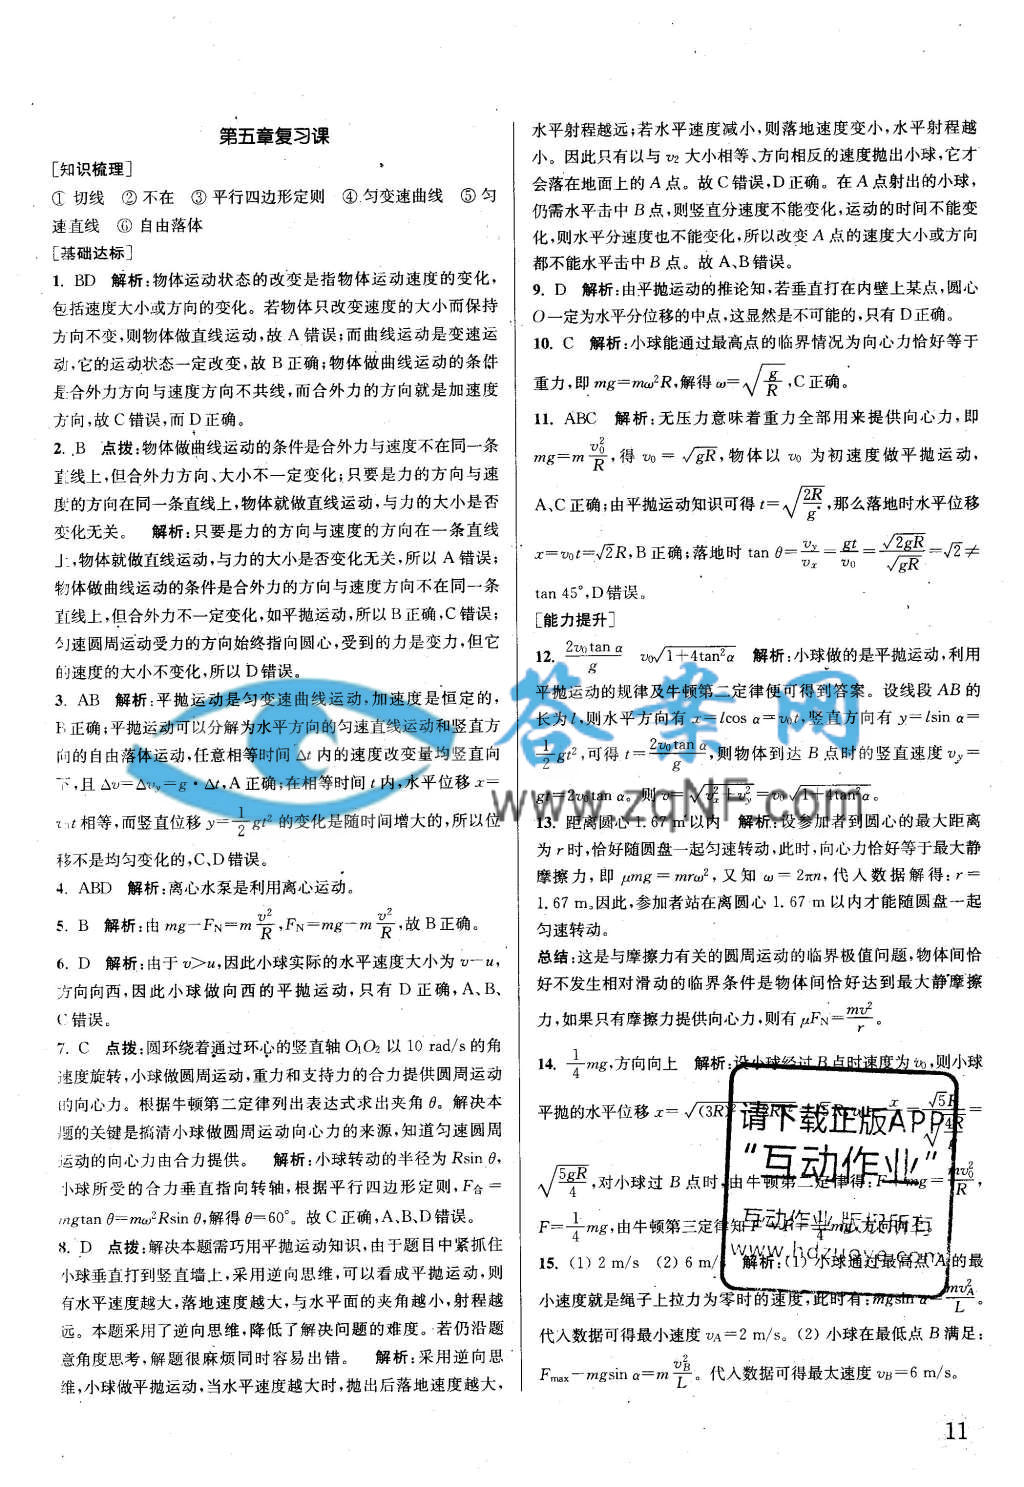 第五章复习课
[知识梳理]
① 切线 ② 不在 ③ 平行四边形定则 ④ 匀变速曲线 ⑤ 匀
速直线 ⑥ 自由落体
[基础达标]
1. BD 解析:物体运动状态的改变是指物体运动速度的变化,
包括速度大小或方向的变化。若物体只改变速度的大小而保持
方向不变,则物体做直线运动,故 A 错误;而曲线运动是变速运
动,它的运动状态一定改变,故 B 正确;物体做曲线运动的条件
是合外力方向与速度方向不共线,而合外力的方向就是加速度
方向,故 C 错误,而 D 正确。
2. B 点拨:物体做曲线运动的条件是合外力与速度不在同一条
直线上,但合外力方向、大小不一定变化;只要是力的方向与速
度的方向在同一条直线上,物体就做直线运动,与力的大小是否
变化无关。 解析:只要是力的方向与速度的方向在一条直线
上,物体就做直线运动,与力的大小是否变化无关,所以 A 错误;
物体做曲线运动的条件是合外力的方向与速度方向不在同一条
直线上,但合外力不一定变化,如平抛运动,所以 B 正确,C 错误;
匀速圆周运动受力的方向始终指向圆心,受到的力是变力,但它
的速度的大小不变化,所以 D 错误。
3. AB 解析:平抛运动是匀变速曲线运动,加速度是恒定的,
B 正确;平抛运动可以分解为水平方向的匀速直线运动和竖直方
向的自由落体运动,任意相等时间 Δt 内的速度改变量均竖直向
下,且 Δv=Δv_y=g·Δt,A 正确;在相等时间 t 内,水平位移 x=
v₀t 相等,而竖直位移 y=1/2 gt² 的变化是随时间增大的,所以位
移不是均匀变化的,C、D 错误。
4. ABD 解析:离心水泵是利用离心运动。
5. B 解析:由 mg-F_N=m v²/R,F_N=mg-m v²/R,故 B 正确。
6. D 解析:由于 v>u,因此小球实际的水平速度大小为 v-u,
方向向西,因此小球做向西的平抛运动,只有 D 正确,A、B、
C 错误。
7. C 点拨:圆环绕着通过环心的竖直轴 O₁O₂ 以 10 rad/s 的角
速度旋转,小球做圆周运动,重力和支持力的合力提供圆周运动
的向心力。根据牛顿第二定律列出表达式求出夹角 θ。解决本
题的关键是搞清小球做圆周运动向心力的来源,知道匀速圆周
运动的向心力由合力提供。 解析:小球转动的半径为 Rsin θ,
小球所受的合力垂直指向转轴,根据平行四边形定则,F合=
mgtan θ=mω²Rsin θ,解得 θ=60°。故 C 正确,A、B、D 错误。
8. D 点拨:解决本题需巧用平抛运动知识,由于题目中紧抓住
小球垂直打到竖直墙上,采用逆向思维,可以看成平抛运动,则
有水平速度越大,落地速度越大,与水平面的夹角越小,射程越
远。本题采用了逆向思维,降低了解决问题的难度。若仍沿题
意角度思考,解题很麻烦同时容易出错。 解析:采用逆向思
维,小球做平抛运动,当水平速度越大时,抛出后落地速度越大,
水平射程越远;若水平速度减小,则落地速度变小,水平射程越
小。因此只有以与 v₂ 大小相等、方向相反的速度抛出小球,它才
会落在地面上的 A 点。故 C 错误,D 正确。在 A 点射出的小球,
仍需水平击中 B 点,则竖直分速度不能变化,运动的时间不能变
化,则水平分速度也不能变化,所以改变 A 点的速度大小或方向
都不能水平击中 B 点。故 A、B 错误。
9. D 解析:由平抛运动的推论知,若垂直打在内壁上某点,圆心
O 一定为水平分位移的中点,这显然是不可能的,只有 D 正确。
10. C 解析:小球能通过最高点的临界情况为向心力恰好等于
重力,即 mg=mω²R,解得 ω=√(g/R),C 正确。
11. ABC 解析:无压力意味着重力全部用来提供向心力,即
mg=m v₀²/R,得 v₀=√(gR),物体以 v₀ 为初速度做平抛运动,
A、C 正确;由平抛运动知识可得 t=√(2R/g),那么落地时水平位移
x=v₀t=√2R,B 正确;落地时 tan θ=v_y/v_x=gt/v₀=√(2gR)/√(gR)=√2≠
tan 45°,D 错误。
[能力提升]
12. 2v₀tan α/g v₀√(1+4tan²α) 解析:小球做的是平抛运动,利用
平抛运动的规律及牛顿第二定律便可得到答案。设线段 AB 的
长为 l,则水平方向有 x=lcos α=v₀t,竖直方向有 y=lsin α=
1/2 gt²,可得 t=2v₀tan α/g,则物体到达 B 点时的竖直速度 v_y=
gt=2v₀tan α。则 v=√(v_x²+v_y²)=v₀√(1+4tan²α)。
13. 距离圆心 1.67 m 以内 解析:设参加者到圆心的最大距离
为 r 时,恰好随圆盘一起匀速转动,此时,向心力恰好等于最大静
摩擦力,即 μmg=mrω²,又知 ω=2πn,代入数据解得:r=
1.67 m。因此,参加者站在离圆心 1.67 m 以内才能随圆盘一起
匀速转动。
总结:这是与摩擦力有关的圆周运动的临界极值问题,物体间恰
好不发生相对滑动的临界条件是物体间恰好达到最大静摩擦
力,如果只有摩擦力提供向心力,则有 μF_N=mv²/r。
14. 1/4 mg,方向向上 解析:设小球经过 B 点时速度为 v₀,则小球
平抛的水平位移 x=√((3R)²
√(5gR/4),对小球过 B 点时,由牛顿第二定律得:F+mg=mv₀²/R,
F=1/4 mg,由牛顿第三定律知
15. (1) 2 m/s (2) 6 m/s 解析:(1) 小球通过最高点 A 的最
小速度就是绳子上拉力为零时的速度,此时有:mgsin α=mv_A²/L。
代入数据可得最小速度 v_A=2 m/s。(2) 小球在最低点 B 满足:
F_max-mgsin α=m v_B²/L。代入数据可得最大速度 v_B=6 m/s。
11
答案网
www.zqNF.com
请下载正版APP
“互动作业”
互动作业 版权所有
www.hdzuoye.com